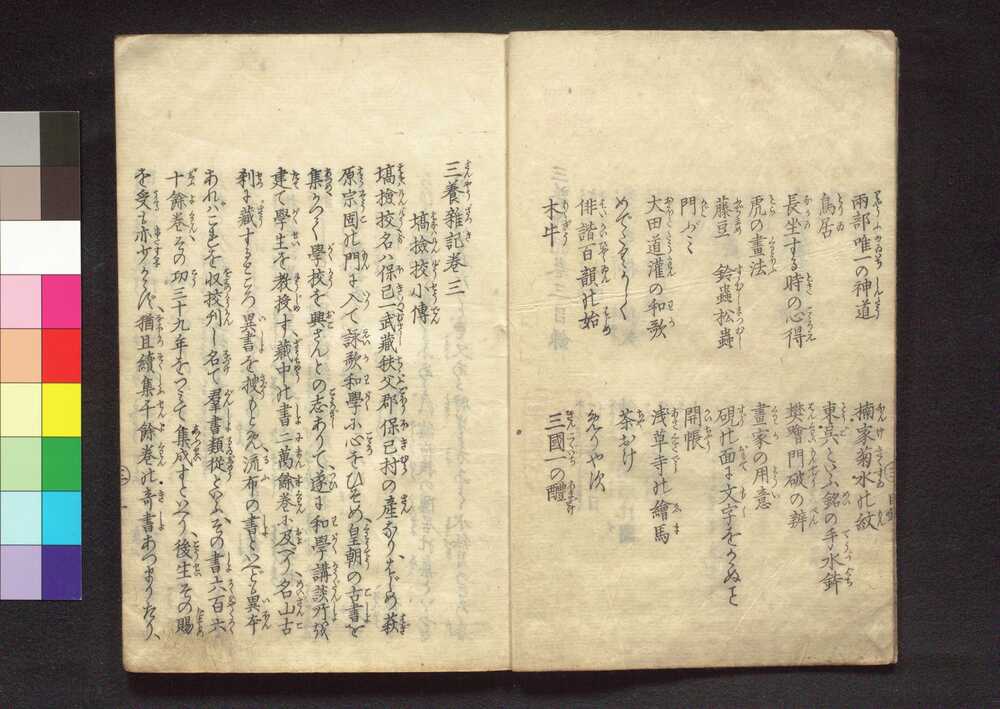 兩部唯一の神道
鳥居
長坐する時の心得
虎の畫法
藤豆　鈴蟲松蟲
門
大田道灌の和歌
めでたくかしく
俳諧百韻の始
木牛
楠家菊水の紋
東呉といふ銘の手水鉢
樊噲門破の辨
畫家の用意
硯の面に文字をゑらぬ
開帳
浅草寺の繪馬
茶
三國一の醴
三養雜記巻三
塙撿挍小傳
塙撿挍名ハ保己一武藏秩父郡保己村の産なりはじめ萩
原宗固の門に入て詠歌和學に心をひそめ皇朝の古書を
集めて學校を興さんとの志ありて遂に和學講談所を
建て學生を教授す藏中の書二萬餘巻に及べり名山古
刹に藏するところ異書を捜りもとめ流布の書といへども異本
あれハこれを収挍刋し名て羣書類從といふその書六百六
十餘巻その功三十九年をつミて集成すといへり後生その賜
を受るもの亦少からず猶且續集千餘巻の奇書あつまりたり